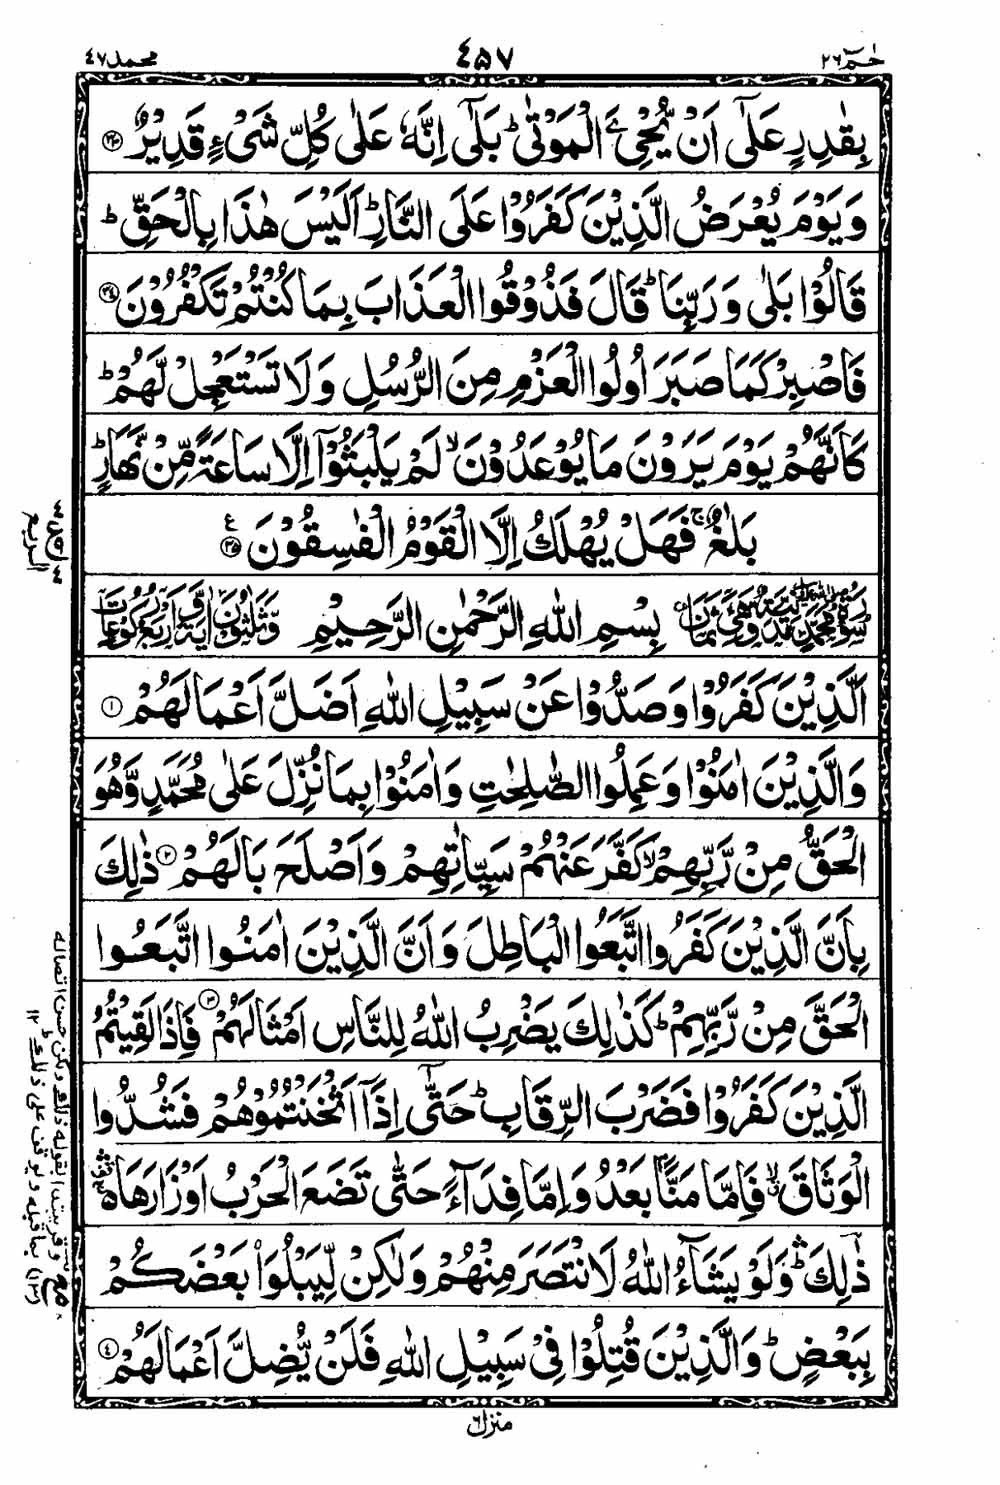 حٰم ٢٦
٤٥٧
محمد ٤٧
بِقٰدِرٍ عَلٰٓى اَنْ يُّحْيِۦَ الْمَوْتٰى ؕ بَلٰٓى اِنَّهٗ عَلٰى كُلِّ شَىْءٍ قَدِيْرٌ ﴿٣٣﴾
وَيَوْمَ يُعْرَضُ الَّذِيْنَ كَفَرُوْا عَلَى النَّارِ ؕ اَلَيْسَ هٰذَا بِالْحَقِّ ؕ
قَالُوْا بَلٰى وَرَبِّنَا ؕ قَالَ فَذُوْقُوا الْعَذَابَ بِمَا كُنْتُمْ تَكْفُرُوْنَ ﴿٣٤﴾
فَاصْبِرْ كَمَا صَبَرَ اُولُوا الْعَزْمِ مِنَ الرُّسُلِ وَلَا تَسْتَعْجِلْ لَّهُمْ ؕ
كَاَنَّهُمْ يَوْمَ يَرَوْنَ مَا يُوْعَدُوْنَ ۙ لَمْ يَلْبَثُوْٓا اِلَّا سَاعَةً مِّنْ نَّهَارٍ ؕ
بَلٰغٌ ۚ فَهَلْ يُهْلَكُ اِلَّا الْقَوْمُ الْفٰسِقُوْنَ ﴿٣٥﴾ ع
بِسْمِ اللّٰهِ الرَّحْمٰنِ الرَّحِيْمِ
اَلَّذِيْنَ كَفَرُوْا وَصَدُّوْا عَنْ سَبِيْلِ اللّٰهِ اَضَلَّ اَعْمَالَهُمْ ﴿١﴾
وَالَّذِيْنَ اٰمَنُوْا وَعَمِلُوا الصّٰلِحٰتِ وَاٰمَنُوْا بِمَا نُزِّلَ عَلٰى مُحَمَّدٍ وَّهُوَ
الْحَقُّ مِنْ رَّبِّهِمْ ۙ كَفَّرَ عَنْهُمْ سَيِّاٰتِهِمْ وَاَصْلَحَ بَالَهُمْ ﴿٢﴾ ذٰلِكَ
بِاَنَّ الَّذِيْنَ كَفَرُوا اتَّبَعُوا الْبَاطِلَ وَاَنَّ الَّذِيْنَ اٰمَنُوا اتَّبَعُوا
الْحَقَّ مِنْ رَّبِّهِمْ ؕ كَذٰلِكَ يَضْرِبُ اللّٰهُ لِلنَّاسِ اَمْثَالَهُمْ ﴿٣﴾ فَاِذَا لَقِيْتُمُ
الَّذِيْنَ كَفَرُوْا فَضَرْبَ الرِّقَابِ ؕ حَتّٰٓى اِذَآ اَثْخَنْتُمُوْهُمْ فَشُدُّوا
الْوَثَاقَ ۙ فَاِمَّا مَنًّاۢ بَعْدُ وَاِمَّا فِدَآءً حَتّٰى تَضَعَ الْحَرْبُ اَوْزَارَهَا ۛ۬
ذٰلِكَ ۛؕ وَلَوْ يَشَآءُ اللّٰهُ لَانْتَصَرَ مِنْهُمْ وَلٰكِنْ لِّيَبْلُوَا۟ بَعْضَكُمْ
بِبَعْضٍ ؕ وَالَّذِيْنَ قُتِلُوْا فِىْ سَبِيْلِ اللّٰهِ فَلَنْ يُّضِلَّ اَعْمَالَهُمْ ﴿٤﴾
منزل ٦